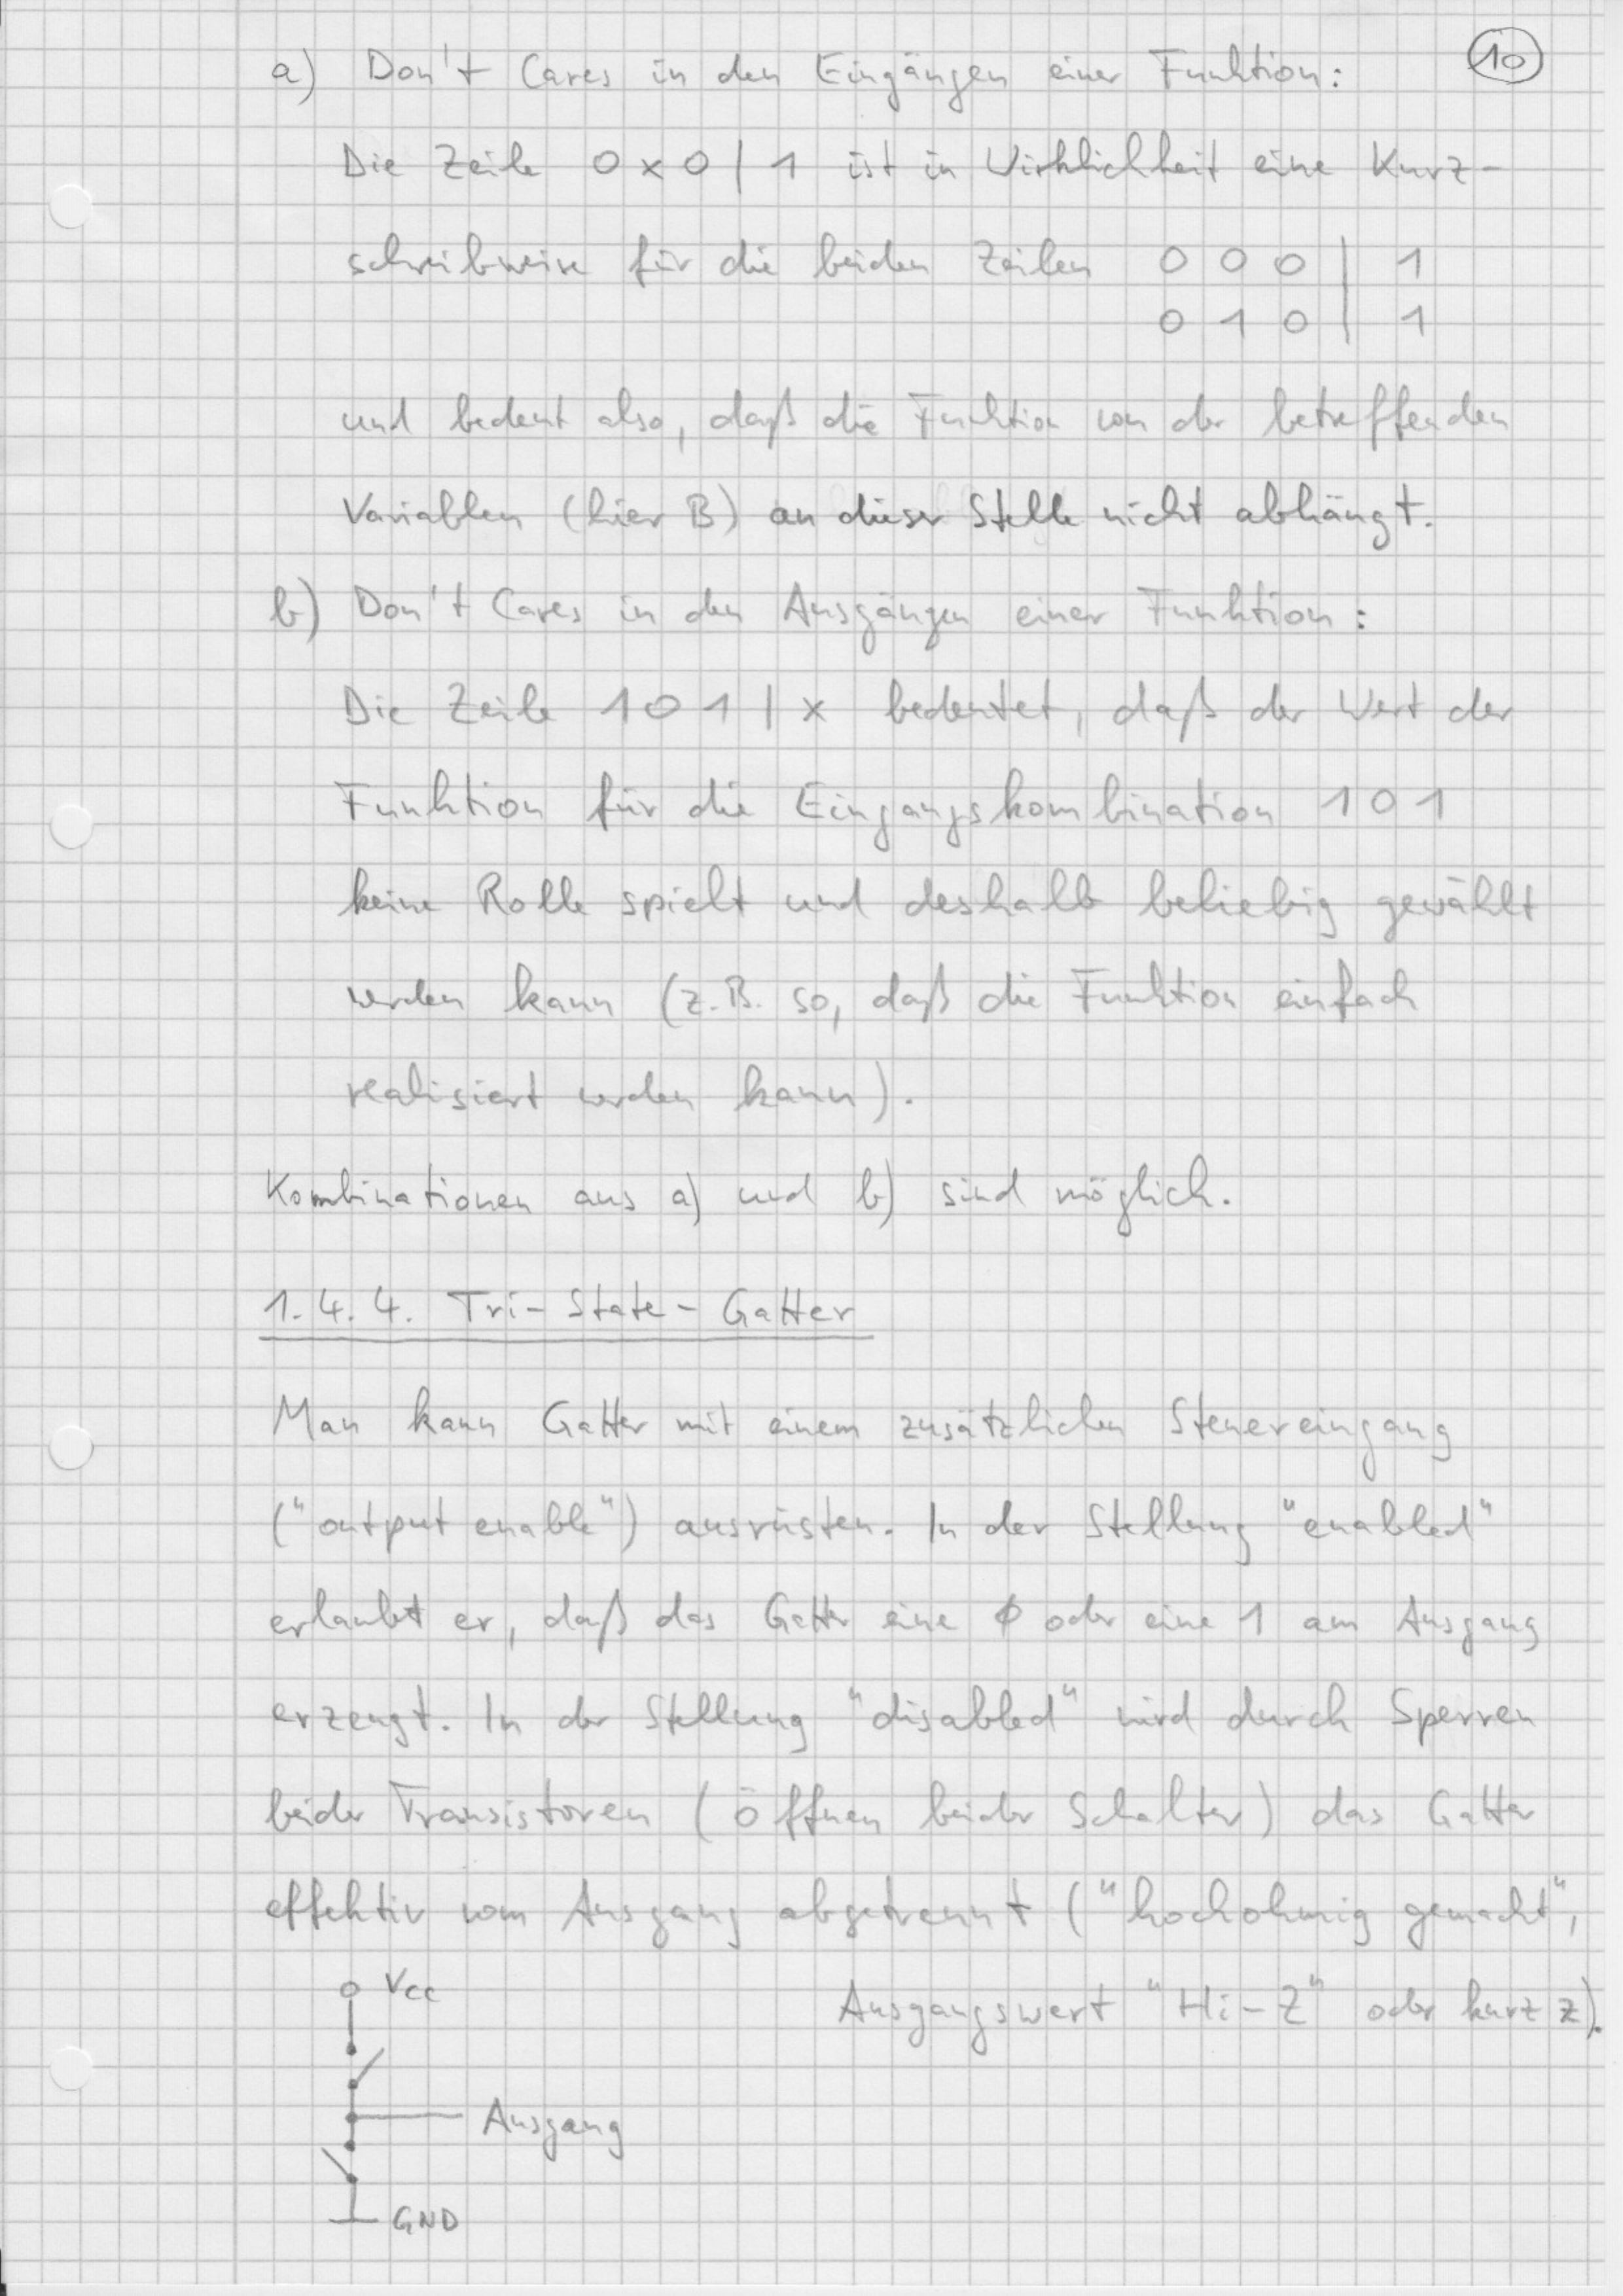 a) Don't Cares in den Eingängen einer Funktion: 10
Die Zeile 0 x 0 | 1 ist in Wirklichkeit eine Kurz-
schreibweise für die beiden Zeilen 0 0 0 | 1
0 1 0 | 1
und bedeut also, daß die Funktion von der betreffenden
Variablen (hier B) an dieser Stelle nicht abhängt.
b) Don't Cares in den Ausgängen einer Funktion:
Die Zeile 1 0 1 | x bedeutet, daß der Wert der
Funktion für die Eingangskombination 1 0 1
keine Rolle spielt und deshalb beliebig gewählt
werden kann (z.B. so, daß die Funktion einfach
realisiert werden kann).
Kombinationen aus a) und b) sind möglich.
1.4.4. Tri-State-Gatter
Man kann Gatter mit einem zusätzlichen Steuereingang
("output enable") ausrüsten. In der Stellung "enabled"
erlaubt er, daß das Gatter eine 0 oder eine 1 am Ausgang
erzeugt. In der Stellung "disabled" wird durch Sperren
beider Transistoren (Öffnen beider Schalter) das Gatter
effektiv vom Ausgang abgetrennt ("hochohmig gemacht",
Ausgangswert "Hi-Z" oder kurz z).
Vcc
Ausgang
GND